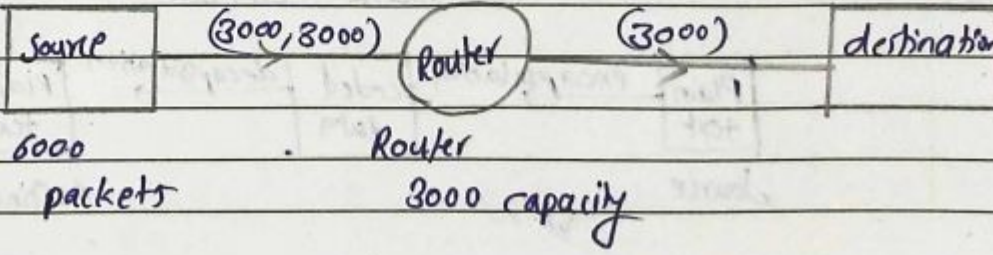 Source (3000, 3000) Router (3000) destination
6000 Router
packets 3000 capacity